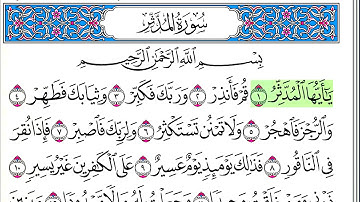 سورة المدثر
بسم الله الرحمن الرحيم
يَٰٓأَيُّهَا ٱلْمُدَّثِّرُ ١ قُمْ فَأَنذِرْ ٢ وَرَبَّكَ فَكَبِّرْ ٣ وَثِيَابَكَ فَطَهِّرْ ٤
وَٱلرُّجْزَ فَٱهْجُرْ ٥ وَلَا تَمْنُن تَسْتَكْثِرُ ٦ وَلِرَبِّكَ فَٱصْبِرْ ٧ فَإِذَا نُقِرَ
فِي ٱلنَّاقُورِ ٨ فَذَٰلِكَ يَوْمَئِذٍ يَوْمٌ عَسِيرٌ ٩ عَلَى ٱلْكَٰفِرِينَ غَيْرُ يَسِيرٍ ١٠